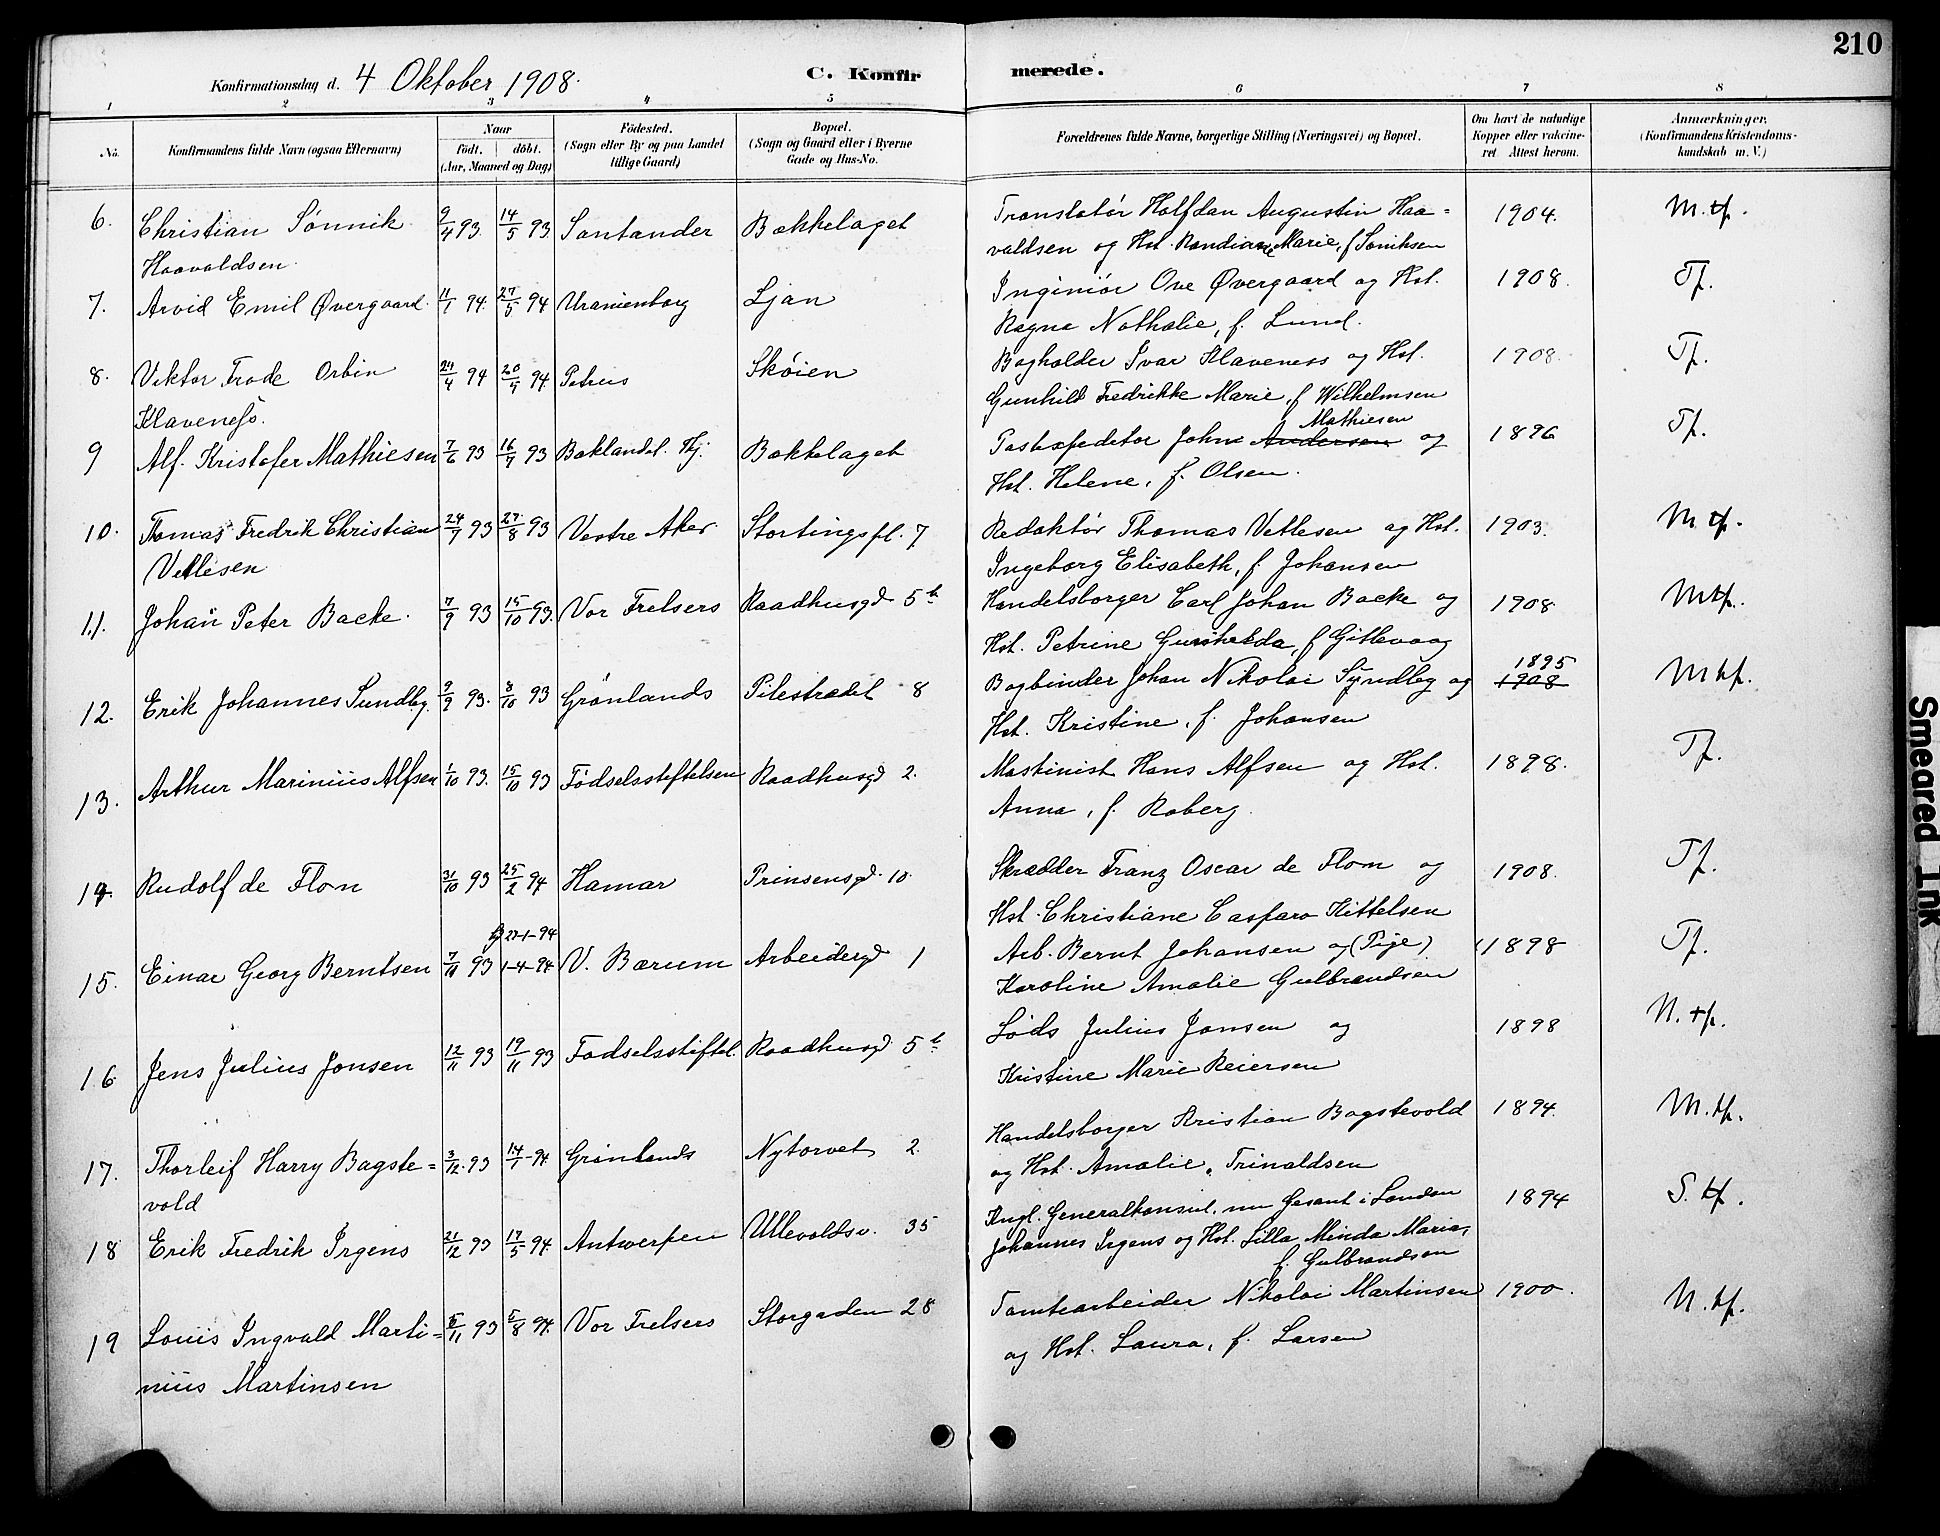 210
Konfirmationsdag d. 4 Oktober 1908.
C. Konfirmerede.
1 2 3 4 5 6 7 8
No. Konfirmandens fulde Navn (ogsaa Efternavn) Naar födt. döbt. (Aar, Maaned og Dag) Födested. (Sogn eller By og paa Landet tillige Gaard) Bopæl. (Sogn og Gaard eller i Byerne Gade og Hus-No. Forældrenes fulde Navne, borgerlige Stilling (Næringsvei) og Bopæl. Om havt de naturlige Kopper eller vakcineret. Attest herom. Anmærkninger. (Konfirmandens Kristendomskundskab m. V.)
6. Christian Sønnik 9/4 93. 14/5 93 Santander Bækkelaget Translatør Halfdan Augustin Haa= 1904. M.tf.
Haavaldsen. valdsen og Hst. Randiane Marie, f Søniksen
7. Arvid Emil Øvergaard. 11/1 94. 27/5 94 Uranienborg Ljan Ingeniör Ove Øvergaard og Hst. 1908. Tf.
Ragna Nathalie, f. Lund.
8. Viktor Frode Orbin 24/4 94 20/9 94 Petrus Skøien Bogholder Ivar Klaveness og Hst. 1908. Tf.
Klaveness. Gunhild Fredrikke Marie, f Wilhelmsen
Mathiesen
9 Alf. Kristofer Mathiesen 7/6 93 16/7 93 Baklandet. Thj. Bækkelaget Postexpeditør Johne Andersen og 1896 Tf.
Hst. Helene, f. Olsen.
10. Thomas Fredrik Christian 24/7 93 27/8 93 Vestre Aker Stortingspl. 7 Redaktør Thomas Vetlesen og Hst. 1903. M tf.
Vetlesen Ingeborg Elisabeth, f Johansen
11. Johan Peter Backe. 7/9 93 15/10 93. Vor Frelsers Raadhusgd 5 b Handelsborger Carl Johan Backe og 1908 Mtf.
Hst. Petrine Gunhilda, f Gitlevaag
1895
12. Erik Johannes Sundby. 9/9 93. 8/10 93 Grønlands Pilestrædet 8 Bogbinder Johan Nikolai Syndbey og 1908 Mtf.
Hst. Kristine, f. Johansen
13. Arthur Marinius Alfsen 1/10 93. 15/10 93 Födselsstiftelsen Raadhusgd 2. Maskinist Hans Alfsen og Hst. 1898. Tf.
Anna, f. Roberg.
14. Rudolf de Flon 31/10 93 25/2 94 Hamar Prinsensgd. 10. Skrædder Franz Oscar de Flon og 1908. Tf.
Hst. Christiane Casfara Kittelsen
27-1-94
15. Einar Georg Berntsen 7/11 93 1-4-94 V. Bærum Arbeidergd 1 Arb. Bernt Johansen og (Pige) 1898 Tf.
Karoline Amalie Gulbrandsen
16 Jens Julius Jonsen 12/11 93 19/11 93 Fødselsstiftel. Raadhusgd 5 b Løds Julius Jansen og 1898 N. tf.
Kristine Marie Reiersen
17. Thorleif Harry Bagste= 3/12 93 14/1-94 Grønlands Nytorvet 2. Handelsborger Kristian Bagstevold 1894. M. tf.
vold og Hst. Amalie, Trinaldsen
18 Erik Fredrik Irgens 21/12 93 17/5 94. Antwerpen Ullevoldsv. 35 Kngl. Generalkonsul, nu Gesant i London 1894 S. tf.
Johannes Irgens og Hst. Lilla Minda Maria,
f. Gulbrandsen
19 Louis Ingvald Marti= 5/11 93 5/8 94. Vor Frelsers Storgaden 28 Tomtearbeider Nikolai Martinsen 1900. N. tf.
nius Martinsen og Hst. Laura, f. Larsen
Smeared Ink